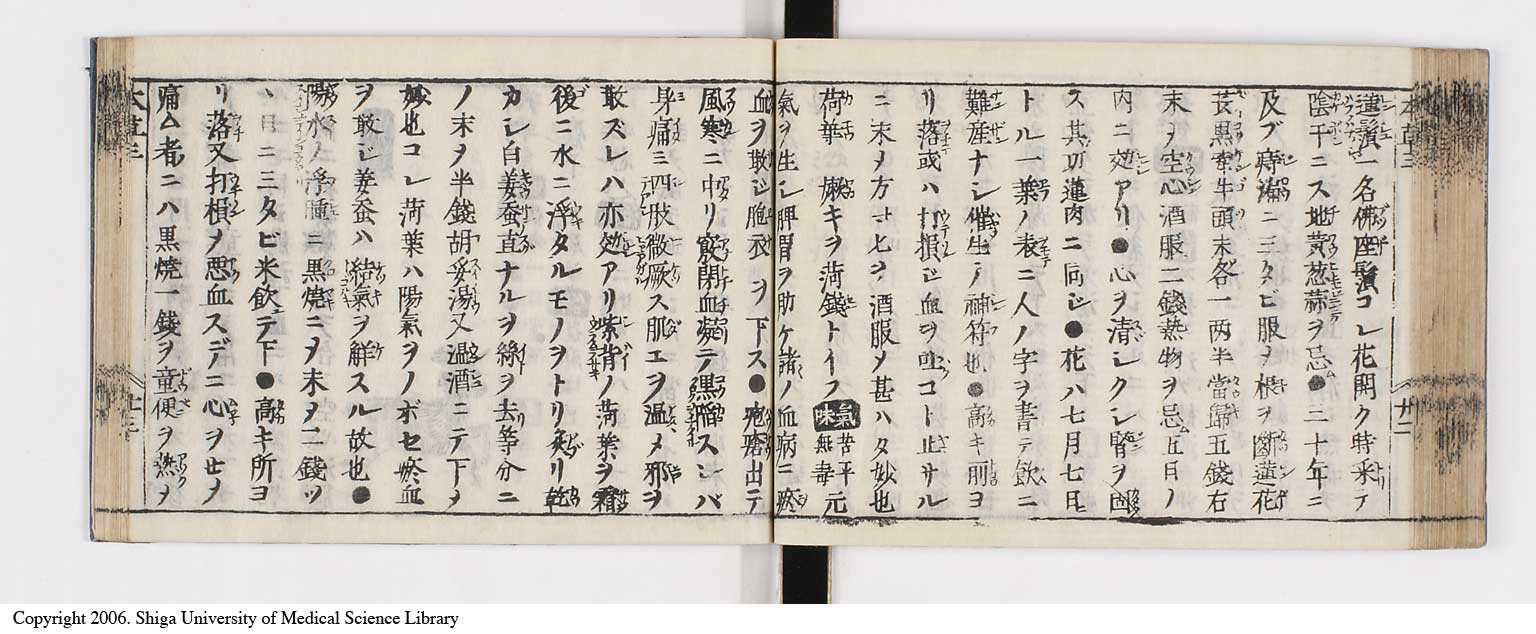 蓮蘂一名佛座鬚コレ花開ク時采テ
陰干ニス地黄葱蒜ヲ忌●二十年ニ
及ブ痔漏ニ三タビ服ヲ根ヲ断蓮花
蘂黒牽牛頭末各一両半當歸五錢右
末ヲ空心酒服二錢熱物ヲ忌五日ノ
内ニ効アリ●心ヲ清シクシ腎ヲ固
ス其功蓮肉ニ同シ●花ハ七月七日
トル一葉ノ表ニ人ノ字ヲ書テ飲ニ
難産ナシ催生ノ神符也●高キ所ヨ
リ落或ハ打損シ血ヲ吐コト止サル
ニ末ヲ方寸七ヲ酒服メ甚ハタ妙也
荷葉 嫩キヲ荷錢トイフ 氣味 苦平元無毒
氣ヲ生シ脾胃ヲ助ケ諸ノ血病ニ瘀
血ヲ散シ胞衣ヲ下ス●疱瘡出テ
風寒ニ中リ竅閉血凝テ黒陥スレバ
身痛ミ四肢微厥ス肌エヲ温メ邪ヲ
散ズレハ亦効アリ紫背ノ荷葉ヲ霜
後ニ水ニ浮タルモノヲトリ炙リ乾
カシ白姜蚕直ナルヲ絲ヲ去等分ニ
ノ末ヲ半錢胡荽湯又温酒ニテ下メ
妙也コレ荷葉ハ陽氣ヲノボセ瘀血
ヲ散シ姜蚕ハ結氣ヲ解スル故也●
陽水ノ浮腫ニ黒焼ニヲ末ヲ二錢ツ
ヽ日ニ三タビ米飲テ下●高キ所ヨ
リ落又打損ノ悪血スデニ心ヲセメ
痛ム者ニハ黒焼一錢ヲ童便ヲ熱メ
本草三
廿二
Copyright 2006. Shiga University of Medical Science Library